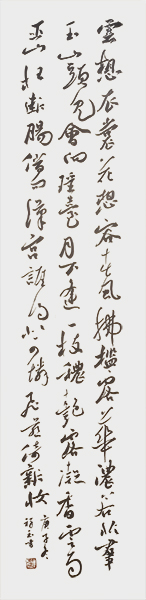 雲想衣裳花想容春風拂檻露華濃若非羣
玉山頭見會向瑤臺月下逢一枝穠艷露凝香雲雨
巫山枉斷腸借問漢宮誰得似可憐飛燕倚新妝
庚子冬